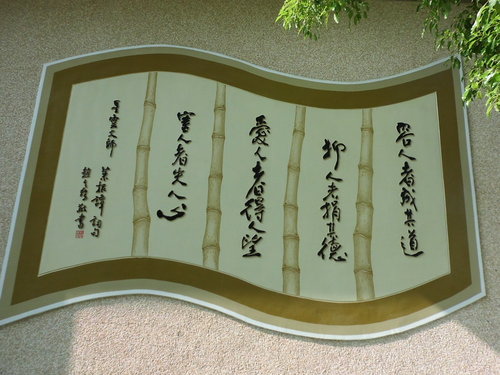 容人者成其道
抑人者損其德
愛人者得人望
害人者失人心
星雲大師
菜根譚詞句
敬書